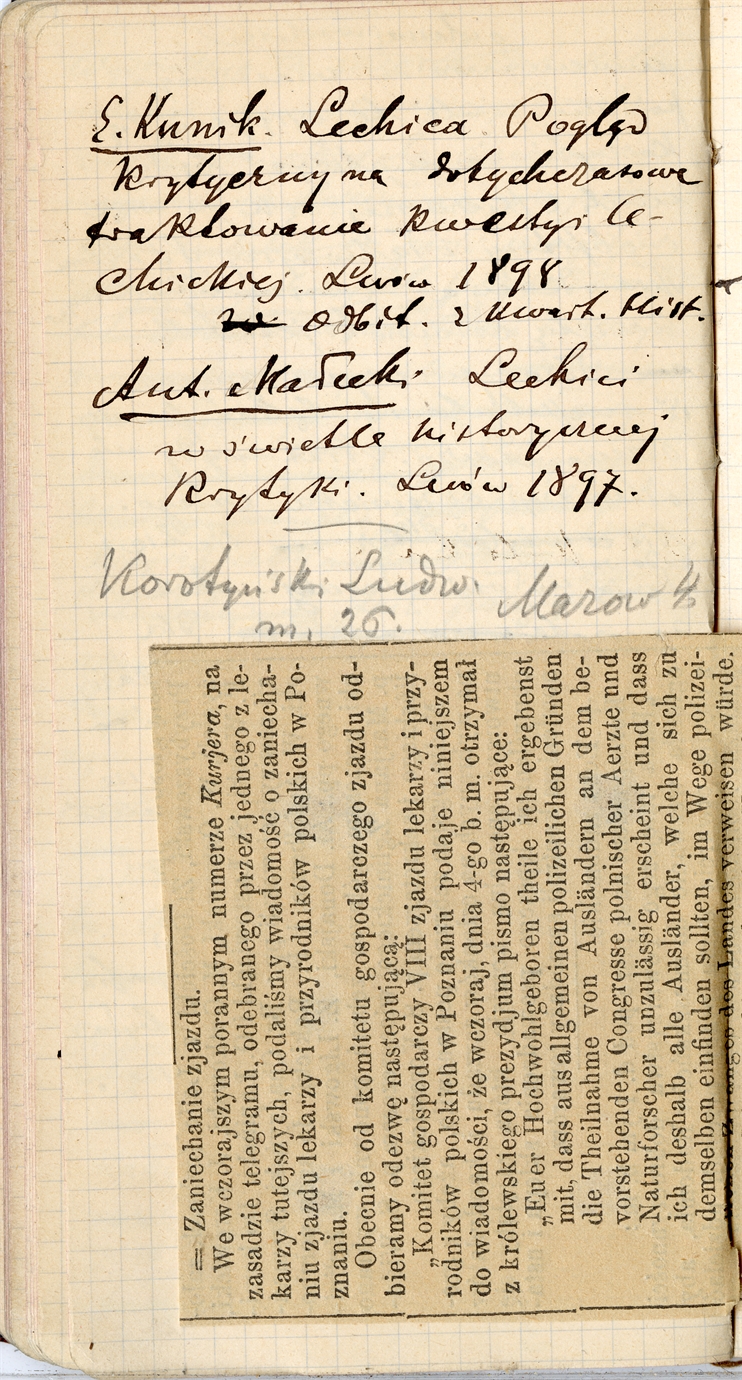 E. Kunik. Lechica Pogląd
krytyczny na dotychczasowe
traktowanie kwestyi le-
chickiej. Lwów 1898
odbit. z Kwart. Hist.
Ant. Małecki Lechici
w świetle historycznej
krytyki. Lwów 1897.
Korotyński Ludw.
m. 26.
= Zaniechanie zjazdu.
We wczorajszym porannym numerze Kurjera, na
zasadzie telegramu, odebranego przez jednego z le-
karzy tutejszych, podaliśmy wiadomość o zaniecha-
niu zjazdu lekarzy i przyrodników polskich w Po-
znaniu.
Obecnie od komitetu gospodarczego zjazdu od-
bieramy odezwę następującą:
„Komitet gospodarczy VIII zjazdu lekarzy i przy-
rodników polskich w Poznaniu podaje niniejszem
do wiadomości, że wczoraj, dnia 4-go b. m. otrzymał
z królewskiego prezydjum pismo następujące:
„Euer Hochwohlgeboren theile ich ergebenst
mit, dass aus allgemeinen polizeilichen Gründen
die Theilnahme von Ausländern an dem be-
vorstehenden Congresse polnischer Aerzte und
Naturforscher unzulässig erscheint und dass
ich deshalb alle Ausländer, welche sich zu
demselben einfinden sollten, im Wege polizei-
des Landes verweisen würde.